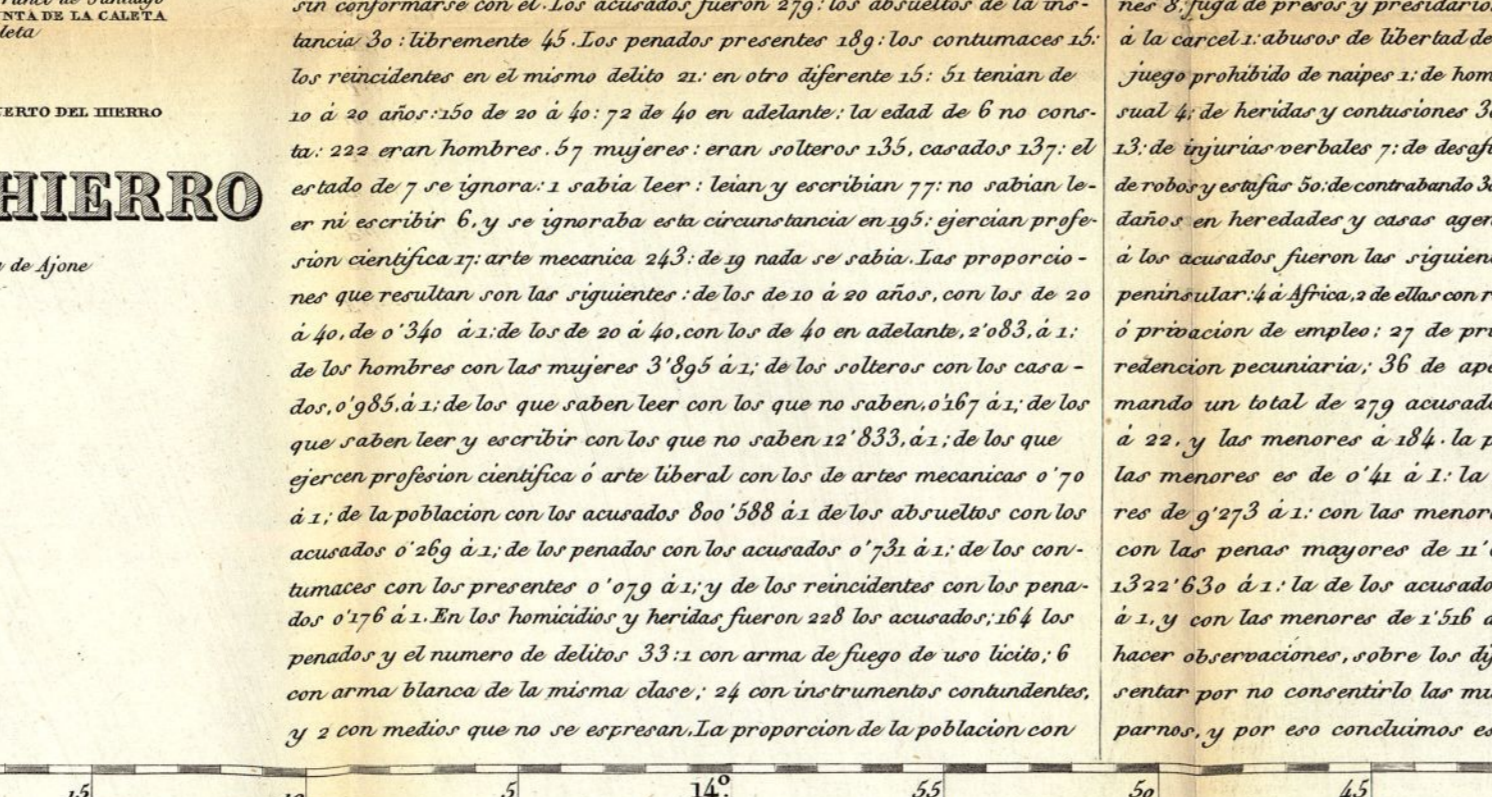 NTA DE LA CALETA
leta
ERTO DEL HIERRO
HIERRO
de Ajone
sin conformarse con el. Los acusados fueron 279: los absueltos de la ins-
tancia 30: libremente 45. Los penados presentes 189: los contumaces 15:
los reincidentes en el mismo delito 21: en otro diferente 15: 51 tenian de
10 á 20 años: 150 de 20 á 40: 72 de 40 en adelante: la edad de 6 no cons-
ta: 222 eran hombres. 57 mujeres: eran solteros 135, casados 137: el
estado de 7 se ignora: 1 sabia leer: leian y escribian 77: no sabian le-
er ni escribir 6, y se ignoraba esta circunstancia en 195: ejercian profe-
sion cientifica 17: arte mecanica 243: de 19 nada se sabia. Las proporcio-
nes que resultan son las siguientes: de los de 10 á 20 años, con los de 20
á 40, de 0'340 á 1: de los de 20 á 40, con los de 40 en adelante, 2'083, á 1;
de los hombres con las mujeres 3'895 á 1; de los solteros con los casa-
dos, 0'985, á 1; de los que saben leer con los que no saben, 0'167 á 1; de los
que saben leer y escribir con los que no saben 12'833, á 1; de los que
ejercen profesion cientifica ó arte liberal con los de artes mecanicas 0'70
á 1; de la poblacion con los acusados 800'588 á 1 de los absueltos con los
acusados 0'269 á 1; de los penados con los acusados 0'731 á 1; de los con-
tumaces con los presentes 0'079 á 1; y de los reincidentes con los pena-
dos 0'176 á 1. En los homicidios y heridas fueron 228 los acusados; 164 los
penados y el numero de delitos 33: 1 con arma de fuego de uso licito; 6
con arma blanca de la misma clase; 24 con instrumentos contundentes,
y 2 con medios que no se espresan. La proporcion de la poblacion con
nes 8, fuga de presos y presidario
á la carcel 1: abusos de libertad de
juego prohibido de naipes 1: de hom
sual 4: de heridas y contusiones 3
13: de injurias verbales 7: de desafi
de robos y estafas 50: de contrabando 3
daños en heredades y casas agen
á los acusados fueron las siguien
peninsular: 4 á Africa, 2 de ellas con r
ó privacion de empleo; 27 de pri
redencion pecuniaria; 36 de ape
mando un total de 279 acusad
á 22, y las menores a 184. la p
las menores es de 0'41 á 1: la
res de 9'273 á 1: con las menor
con las penas mayores de 11'
1322'630 á 1: la de los acusado
á 1, y con las menores de 1'516 a
hacer observaciones, sobre los di
sentar por no consentirlo las mu
parnos, y por eso concluimos es
15 10 5 14º. 55 50 45